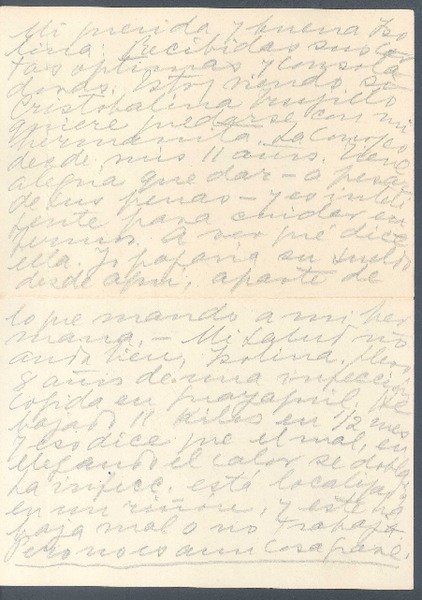 Mi querida y buena Iso
lina: Recibidas sus car
tas optimas y consola
doras. Estoy viendo si
Cristobalina Trujillo
quiere quedarse con mi
hermanita. La conozco
desde mis 11 años. Tiene
alegría que dar - a pesar
de sus penas - y es inteli
gente para cuidar en
fermos. A ver qué dice
ella. Yo pagaría su sueldo
desde aquí, aparte de
lo que mando a mi her
mana. - Mi salud no
anda bien, Isolina. Llevo
8 años de una infección
cogida en Guayaquil. He
bajado 11 kilos en 1/2 mes
y eso dice que el mal, en
llegando el calor se dobla.
La infecc. está localizada
en un riñón, y este tra
baja mal o no trabaja.
Pero no es aun cosa grave.